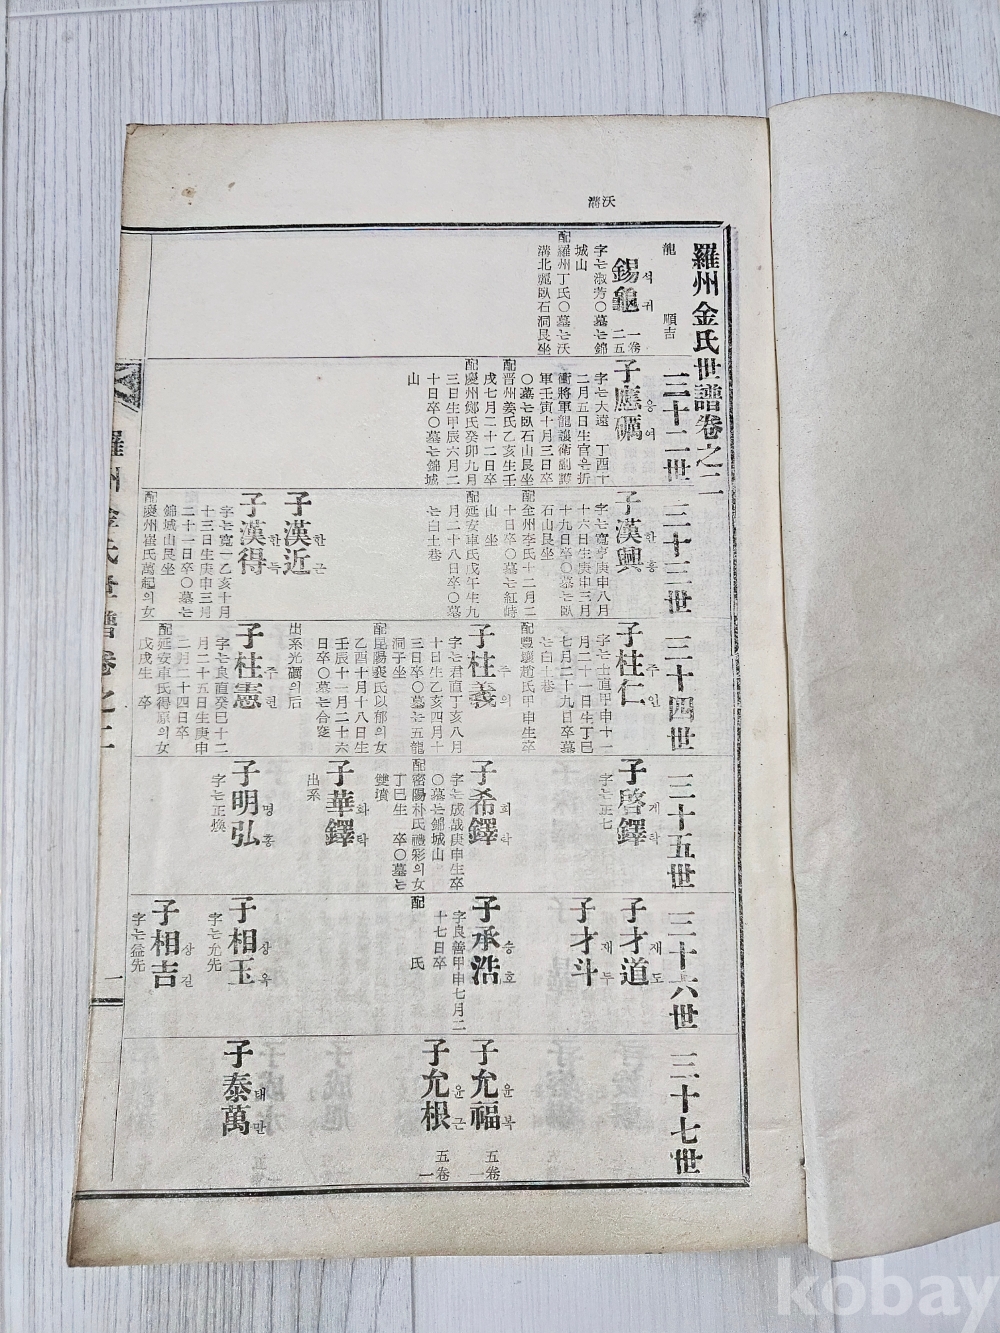 沃溝
羅州金氏世譜卷之二
龍 順吉
錫龜 석귀 一卷 二五
字는淑芳○墓는錦
城山
配羅州丁氏○墓는沃
溝北麗臥石洞艮坐
三十二世
子應礪 응여
字는大遠 丁酉十
二月五日生官은折
衝將軍龍護衛副護
軍壬寅十月三日卒
○墓는臥石山艮坐
配晋州姜氏乙亥生壬
戌七月二十二日卒
配慶州鄭氏癸卯九月
三日生甲辰六月二
十日卒○墓는錦城
山
三十三世
子漢興 한흥
字는寬亨庚申八月
十六日生庚申三月
十九日卒○墓는臥
石山艮坐
配全州李氏十二月二
十日卒○墓는紅峙
山 坐
配延安車氏戊午生九
月二十八日卒○墓
는白土巷
子漢近 한근
子漢得 한득
字는寬一乙亥十月
十三日生庚申三月
二十一日卒○墓는
錦城山艮坐
配慶州崔氏萬起의女
三十四世
子柱仁 주인
字는士直甲申十一
月二十一日生丁巳
七月二十九日卒墓
는白土巷
配豐壤趙氏甲申生
子柱義 주의
字는君直丁亥八月
十日生乙亥四月十
三日卒○墓는五龍
洞子坐
配昆陽裵氏以郁의女
乙酉十月十八日生
壬辰十一月二十六
日卒○墓는合窆
出系光礪의后
子柱憲 주헌
字는良直癸巳十二
月二十五日生庚申
二月二十四日卒
配延安車氏得原의女
戊戌生 卒
三十五世
子啓鐸 계탁
字는正七
子希鐸 희탁
字는成哉庚申生卒
○墓는錦城山
配密陽朴氏禮彩의女
丁巳生 卒○墓는
雙墳
子華鐸 화탁
出系
子明弘 명홍
字는正煥
三十六世
子才道 재도
子才斗 재두
子承浩 승호
字良善甲申七月二
十七日卒
配 氏
子相玉 상옥
字는允先
子相吉 상길
字는益先
三十七世
子允福 윤복 五卷 一
子允根 윤근 五卷 一
子泰萬 태만
羅州金氏世譜卷之二
一
kobay